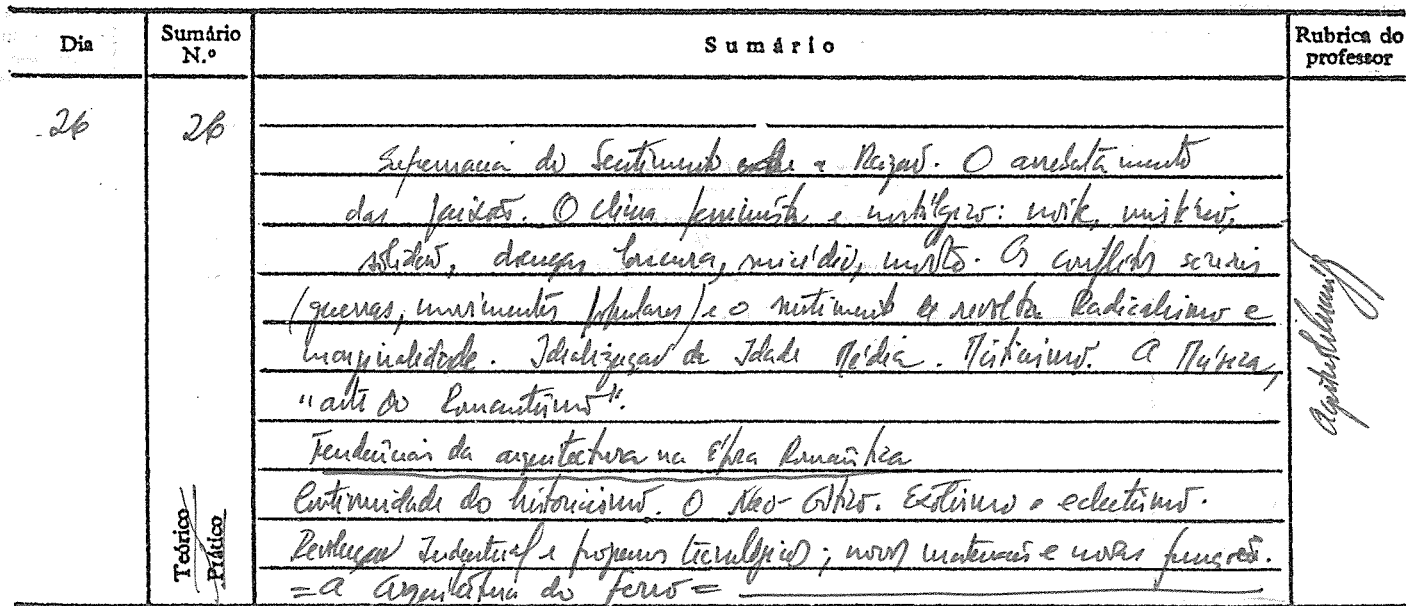 Dia Sumário N.º Sumário Rubrica do professor
26 26
Supremacia do Sentimento sobre a Razão. O arrebatamento
das paixões. O clima pessimista e nostálgico: noite, mistério,
solidão, doenças, loucura, suicídio, morte. Os conflitos sociais
(guerras, movimentos populares) e o sentimento de revolta. Radicalismo e
marginalidade. Idealização da Idade Média. Misticismo. A Música,
"arte do Romantismo".
Tendências da arquitectura na Época Romântica
Continuidade do historicismo. O Neo-Gótico. Exotismo e eclectismo.
Revolução Industrial e progresso tecnológico; novos materiais e novas funções.
= A Arquitectura do Ferro =
Teórico
Prático